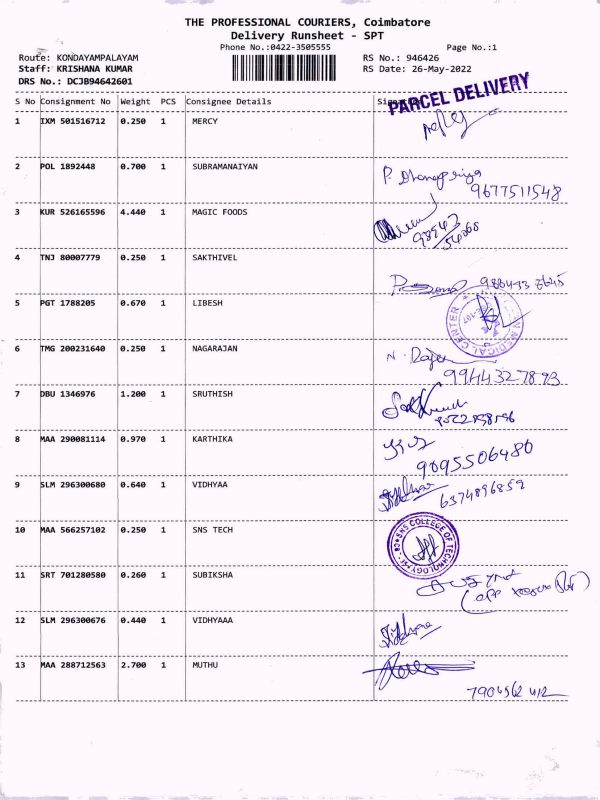 THE PROFESSIONAL COURIERS, Coimbatore
Delivery Runsheet - SPT
Phone No.:0422-3505555 Page No.:1
Route: KONDAYAMPALAYAM RS No.: 946426
Staff: KRISHANA KUMAR RS Date: 26-May-2022
DRS No.: DCJB94642601
PARCEL DELIVERY
S No Consignment No Weight PCS Consignee Details
1 IXM 501516712 0.250 1 MERCY
2 POL 1892448 0.700 1 SUBRAMANAIYAN
9677511548
3 KUR 526165596 4.440 1 MAGIC FOODS
4 TNJ 80007779 0.250 1 SAKTHIVEL
5 PGT 1788205 0.670 1 LIBESH
MEDICAL CENTER
6 TMG 200231640 0.250 1 NAGARAJAN
9944327893
7 DBU 1346976 1.200 1 SRUTHISH
8 MAA 290081114 0.970 1 KARTHIKA
9095506480
9 SLM 296300680 0.640 1 VIDHYAA
6374896859
10 MAA 566257102 0.250 1 SNS TECH
SNS COLLEGE OF TECHNOLOGY
11 SRT 701280580 0.260 1 SUBIKSHA
12 SLM 296300676 0.440 1 VIDHYAAA
13 MAA 288712563 2.700 1 MUTHU